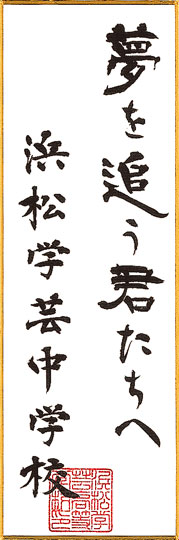 夢を追う君たちへ
浜松学芸中学校